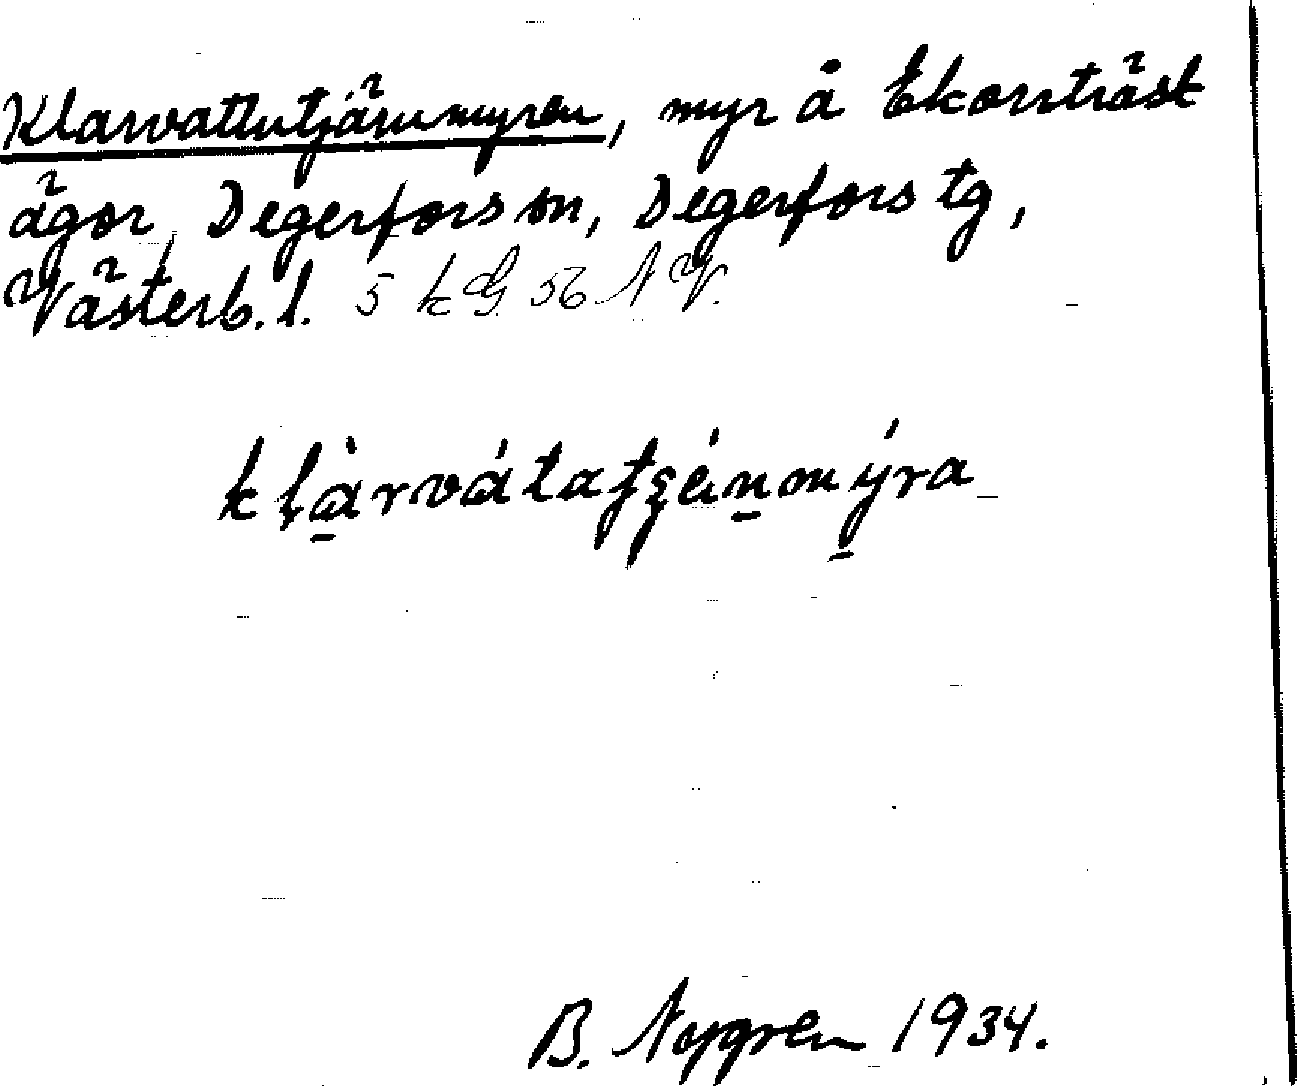 Klarvattutjärnmyren, myr å Ekorrträsk
ägor, Degerfors sn, Degerfors tg,
Västerb. l. 5 kG 56 NV.
klàrvátatjénmýra
B. Nygren 1934.